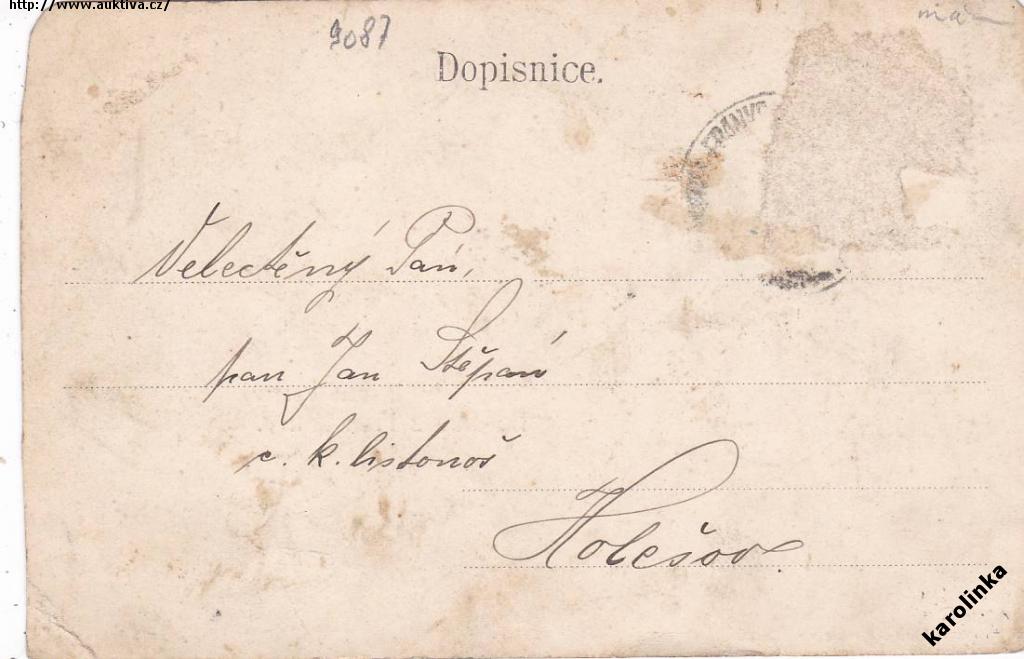 http://www.auktiva.cz/
9087
Dopisnice.
Velectěný Pán,
pan Jan Štěpán
c. k. listonoš
Holešov
karolinka